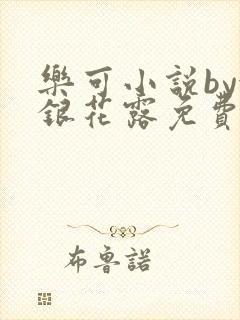 樂可小説by
銀花露免費
布魯諾